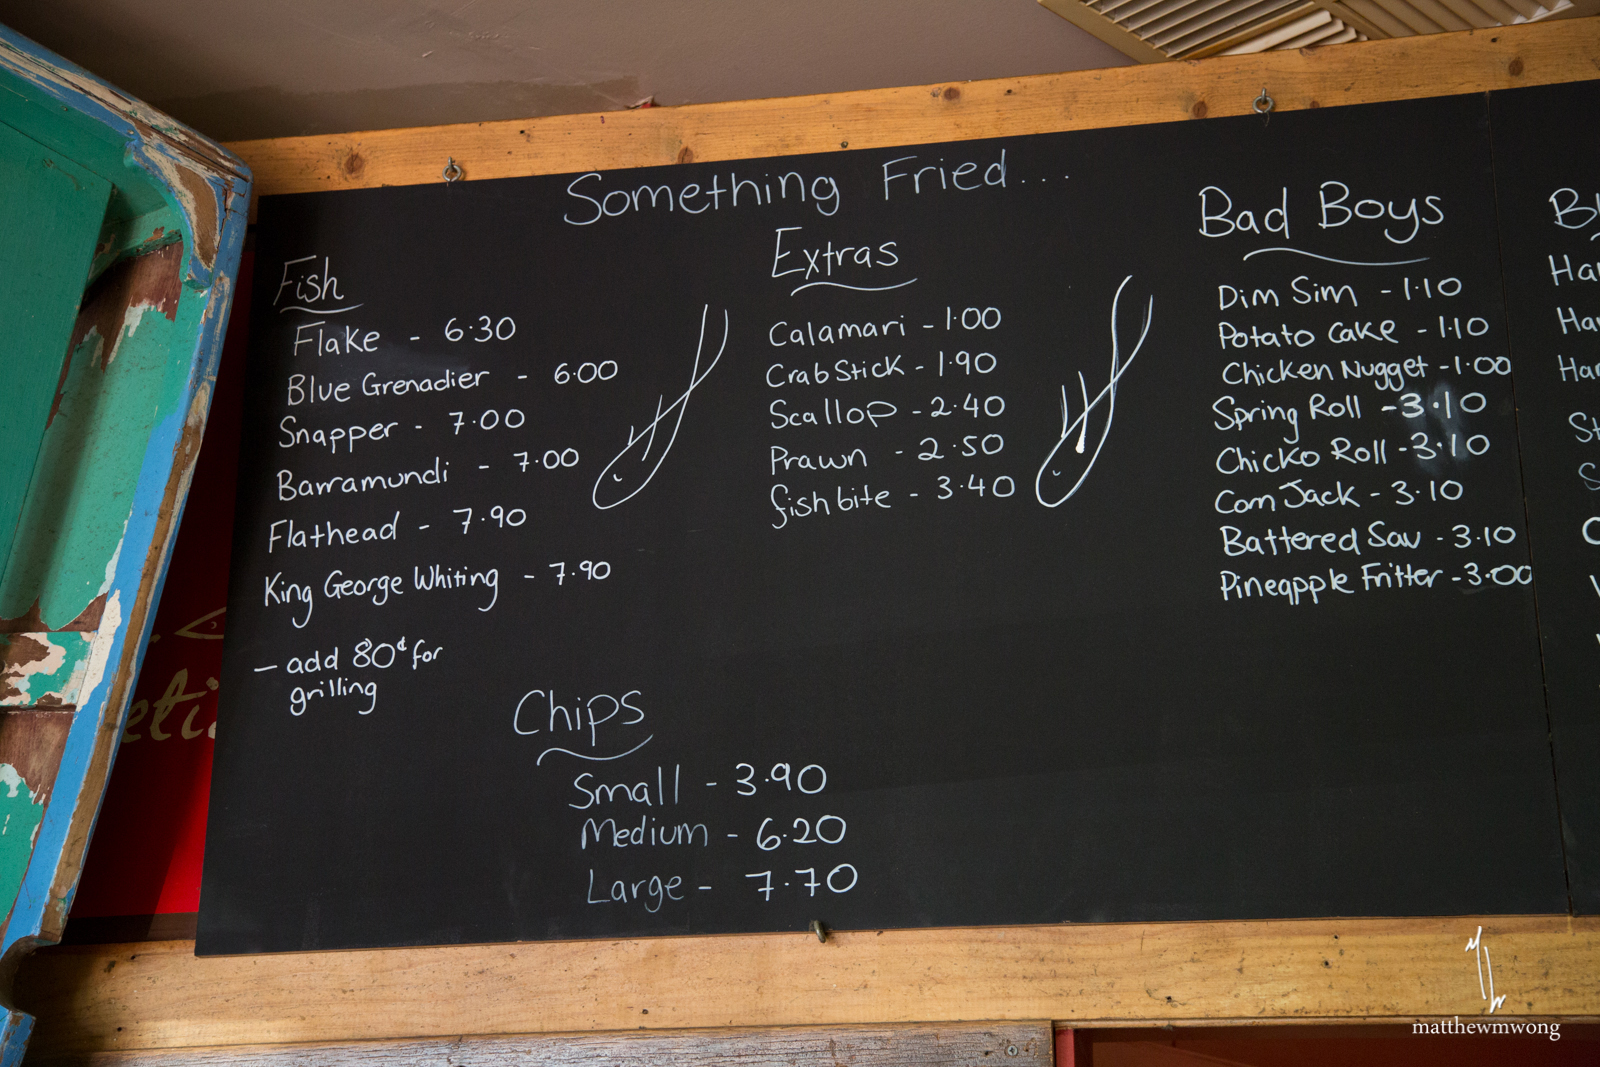 Something Fried...
Fish
Flake - 6.30
Blue Grenadier - 6.00
Snapper - 7.00
Barramundi - 7.00
Flathead - 7.90
King George Whiting - 7.90
- add 80¢ for
grilling
Extras
Calamari - 1.00
Crab Stick - 1.90
Scallop - 2.40
Prawn - 2.50
fish bite - 3.40
Chips
Small - 3.90
Medium - 6.20
Large - 7.70
Bad Boys
Dim Sim - 1.10
Potato Cake - 1.10
Chicken Nugget - 1.00
Spring Roll - 3.10
Chicko Roll - 3.10
Corn Jack - 3.10
Battered Sav - 3.10
Pineapple Fritter - 3.00
matthewmwong